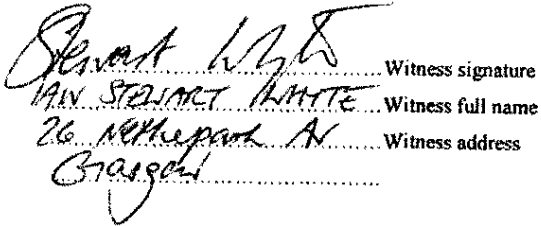 Stewart Whyte Witness signature
IAN STEWART WHYTE Witness full name
26 Nethepark Av Witness address
Glasgow